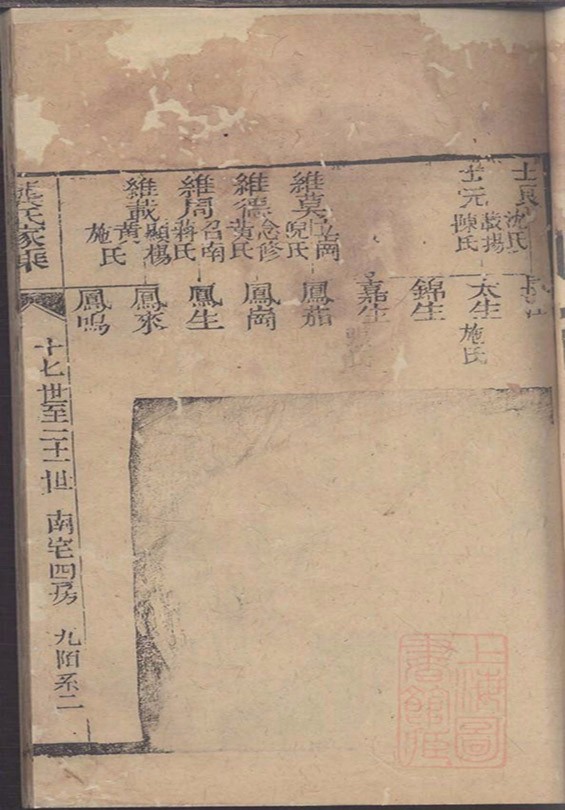 士良
沈氏
士元
啟揚
陳氏
太生
施氏
錦生
嘉生
維莫
倪氏
鳳茄
維德
念修
黃氏
鳳崗
維周
召南
蔣氏
鳳生
維載
顯楊
黃
施氏
鳳來
鳳鳴
氏家乘
十七世至二十一世 南宅四房 九陌系二
上海圖
書館藏